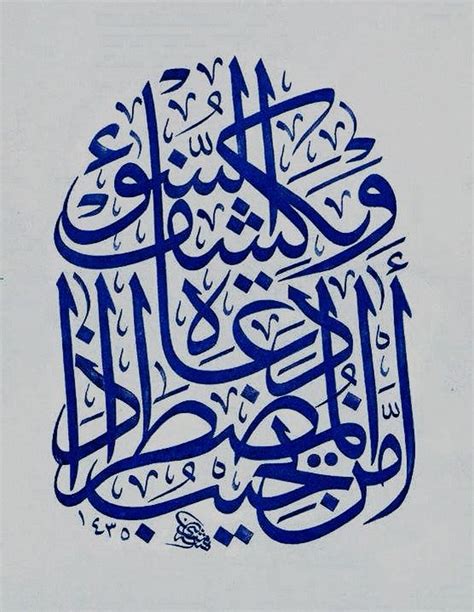 أمَّن يجيب المضطر إذا
دعاه
ويكشف السُّوء
١٤٣٥